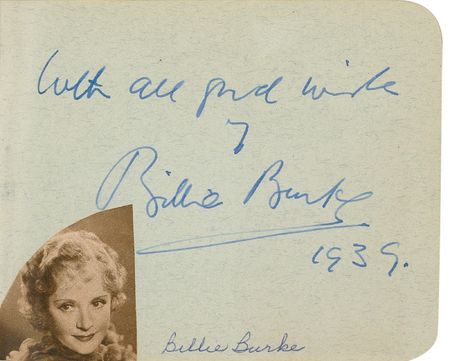 With all good wishes
of
Billie Burke
1939.
Billie Burke